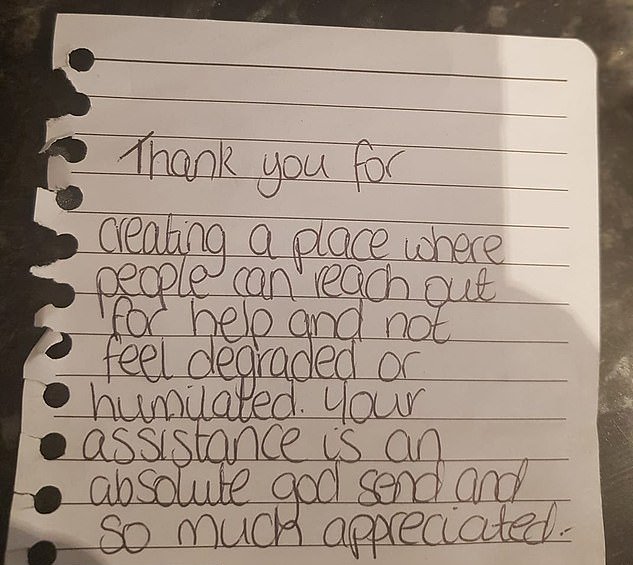 Thank you for
creating a place where
people can reach out
for help and not
feel degraded or
humilated. Your
assistance is an
absolute god send and
so much appreciated.